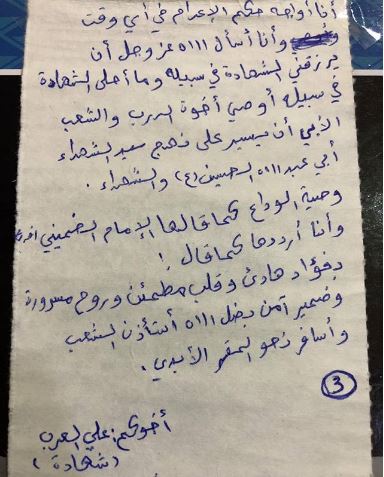 أنا أواجه حكم الإعدام في أي وقت
وأنا أسأل الله عز وجل أن
يرزقني الشهادة في سبيله وما أحلى الشهادة
في سبيله أوصي أخوة الدرب والشعب
الأبي أن يسير على نهج سيد الشهداء
أبي عبد الله الحسين (ع) والشهداء.
وصية الوداع كما قالها الإمام الخميني
وأنا أرددها كما قال!
بفؤاد هادئ وقلب مطمئن وروح مسرورة
وضمير آمن بفضل الله أستأذن الشعب
وأسافر نحو المقر الأبدي.
3
أخوكم: علي العرب
(شهادة)